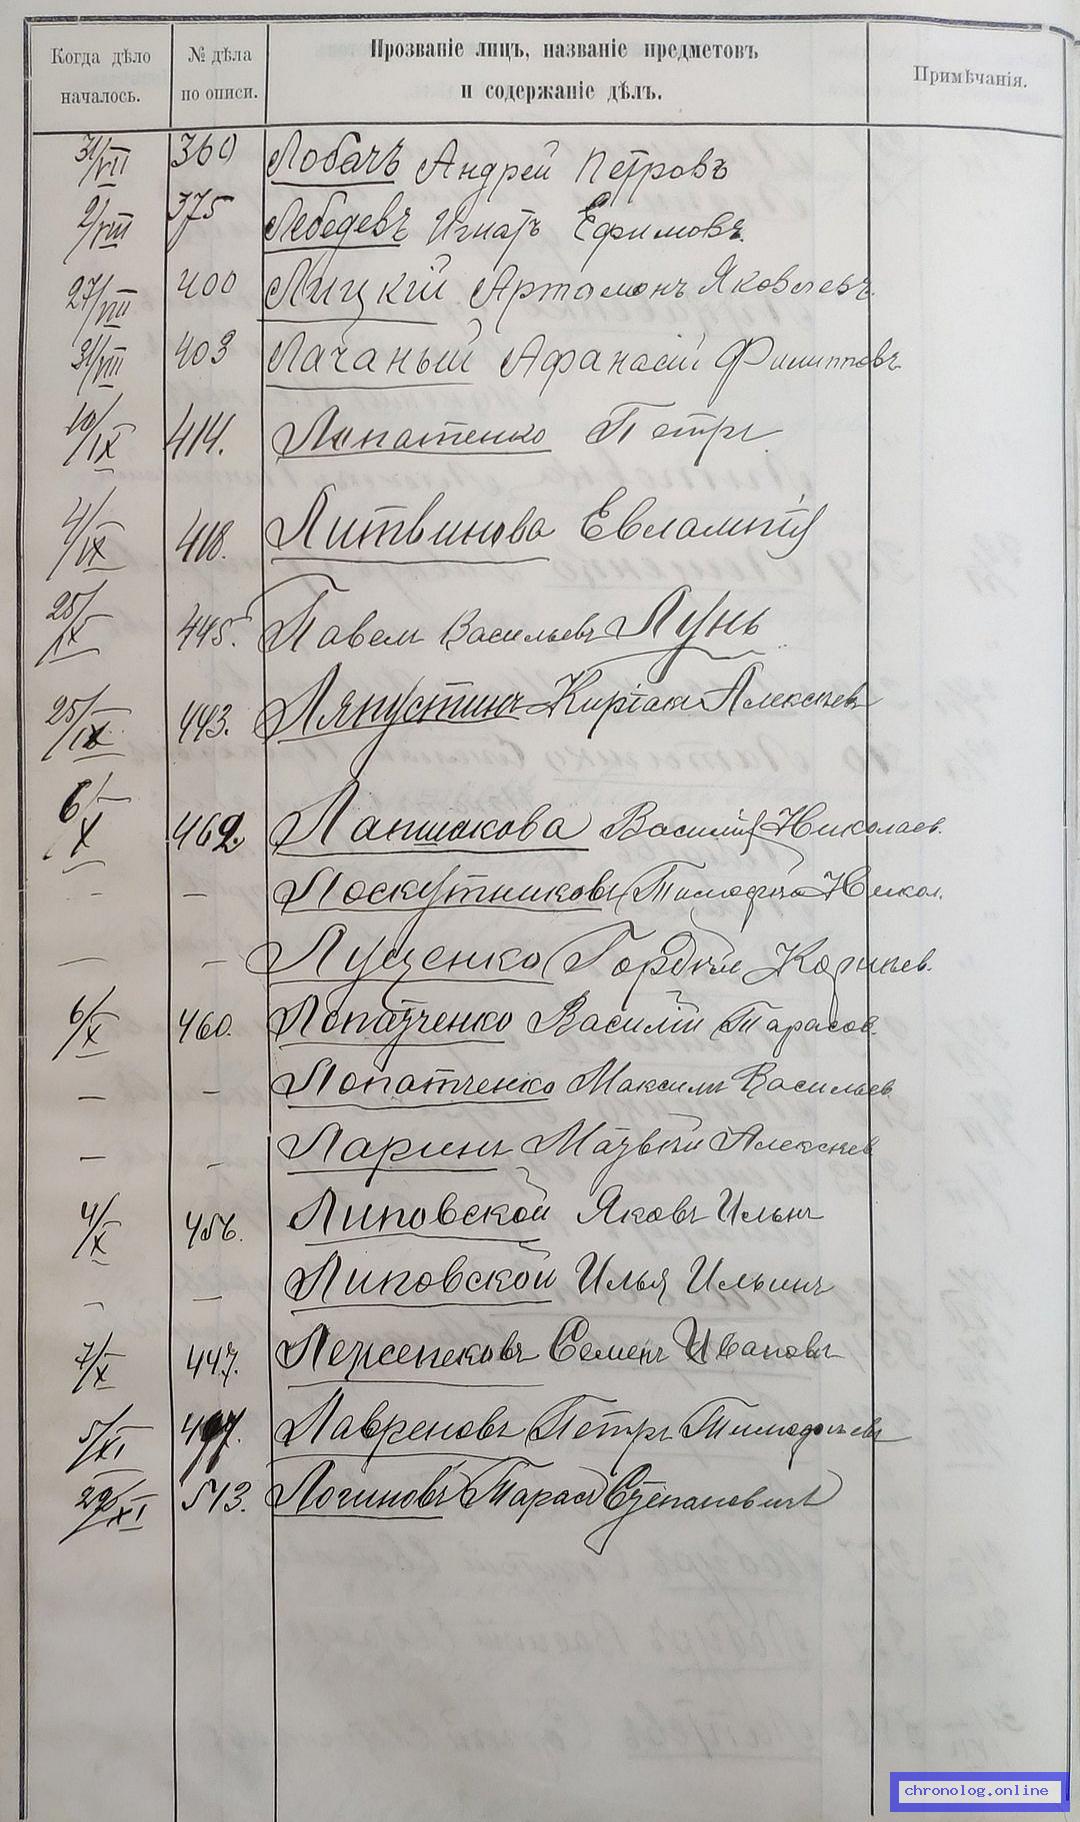 Когда дѣло началось. № дѣла по описи. Прозваніе лицъ, названіе предметовъ и содержаніе дѣлъ. Примѣчанія.
31/VII 360 Лобачъ Андрей Петровъ
2/VIII 375 Лебедевъ Игнатъ Ефимовъ
27/VIII 400 Лицкій Артамонъ Яковлевъ
31/VIII 403 Лачаный Афанасій Филипповъ
10/IX 414. Лопатенко Петръ
4/IX 418. Литвинова Евлампія
25/IX 445. Павелъ Васильевъ Лунь
25/IX 443. Ляпустинъ Киріакъ Алексѣевъ
6/X 462. Василій Николаев.
- - Лоскутниковъ Тимофѣй Никол.
- - Лущенко Гордѣй Корнѣев.
6/X 460. Лопатченко Василій Тарасов.
- - Лопатченко Максимъ Васильев
- - Ларинъ Матвѣй Алексѣев
4/X 456. Липовской Яковъ Ильинъ
- - Липовской Илья Ильинъ
7/X 447. Семенъ Ивановъ
5/XI Лавреновъ Петръ Тимофѣевъ
29/XI 513. Логиновъ Тарас Степановичъ
chronolog.online